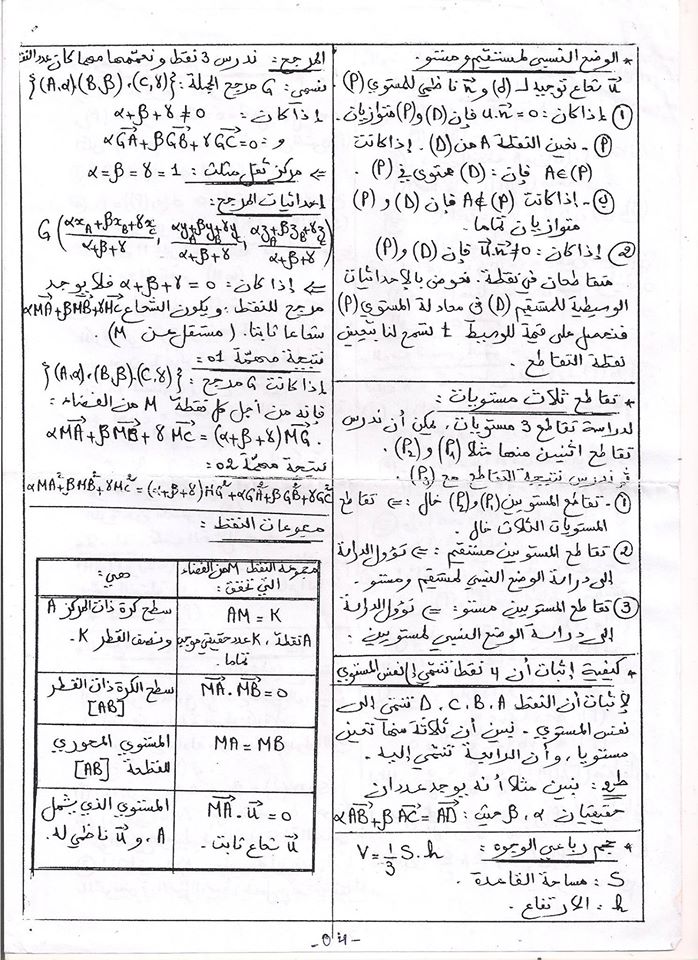 * الوضع النسبي لمستقيم ومستو:
u⃗ شعاع توجيه لـ (d) و n⃗ ناظمي للمستوي (P)
① إذا كان: u.n⃗ = 0 فإن (D) و (P) متوازيان.
P - نعين النقطة A من (D). إذا كانت
A∈(P) فإن: (D) محتوى في (P).
ب - إذا كانت A∉(P) فإن (D) و (P)
متوازيان تماما.
② إذا كان: u⃗.n⃗ ≠ 0 فإن (D) و (P)
متقاطعان في نقطة. نعوض بالإحداثيات
الوسيطية للمستقيم (D) في معادلة المستوي (P)
فنحصل على قيمة للوسيط t تسمح لنا بتعيين
نقطة التقاطع.
* تقاطع ثلاث مستويات:
لدراسة تقاطع 3 مستويات، يمكن أن ندرس
تقاطع اثنين منها مثلا (P₁) و (P₂).
ثم ندرس نتيجة التقاطع مع (P₃)
① - تقاطع المستويين (P₁) و (P₂) خال: ⇐ تقاطع
المستويات الثلاث خال
② تقاطع المستويين مستقيم: ⇐ تؤول الدراسة
إلى دراسة الوضع النسبي لمستقيم ومستو.
③ تقاطع المستويين مستو: ⇐ تؤول الدراسة
إلى دراسة الوضع النسبي لمستويين.
* كيفية إثبات أن 4 نقط تنتمي إلى نفس المستوي
لإثبات أن النقط A، B، C، D تنتمي إلى
نفس المستوي - نبين أن ثلاثة منها تعين
مستويا، وأن الرابعة تنتمي إليه.
طرق: نبين مثلا أنه يوجد عددان
حقيقيان α، β حيث: αAB⃗ + βAC⃗ = AD⃗
* حجم رباعي الوجوه: V = 1/3 S.h
S: مساحة القاعدة
h: الارتفاع.
المرجح: ندرس 3 نقط ونعممها مهما كان عدد النقط
نسمي: G مرجح الجملة: {(A,α).(B,β).(C,γ)}
إذا كان: α+β+γ ≠ 0
و: αGA⃗+βGB⃗+γGC⃗=0
⇐ مركز ثقل مثلث: α = β = γ = 1
إحداثيات المرجح:
G (αx_A+βx_B+γx_C / α+β+γ ; αy_A+βy_B+γy_C / α+β+γ ; αz_A+βz_B+γz_C / α+β+γ)
⇐ إذا كان: α+β+γ = 0 فلا يوجد
مرجح للنقط: ويكون الشعاع αMA⃗+βMB⃗+γMC⃗
شعاعا ثابتا. (مستقل عن M)
نتيجة مهمة 01:
إذا كانت G مرجح: {(A,α).(B,β).(C,γ)}
فإنه من أجل كل نقطة M من الفضاء:
αMA⃗ + βMB⃗ + γMC⃗ = (α+β+γ)MG⃗.
نتيجة مهمة 02:
αMA²+βMB²+γMC²=(α+β+γ)MG²+αGA²+βGB²+γGC²
مجموعات النقط:
مجموعة النقط M من الفضاء التي تحقق: هي:
AM = K سطح كرة ذات المركز A
A نقطة، K عدد حقيقي موجب تماما. ونصف القطر K.
MA⃗.MB⃗ = 0 سطح الكرة ذات القطر [AB]
MA = MB المستوي المحوري للقطعة [AB]
MA⃗.u⃗ = 0 المستوي الذي يشمل
u⃗ شعاع ثابت. A، و u⃗ ناظمي له.
- 04 -